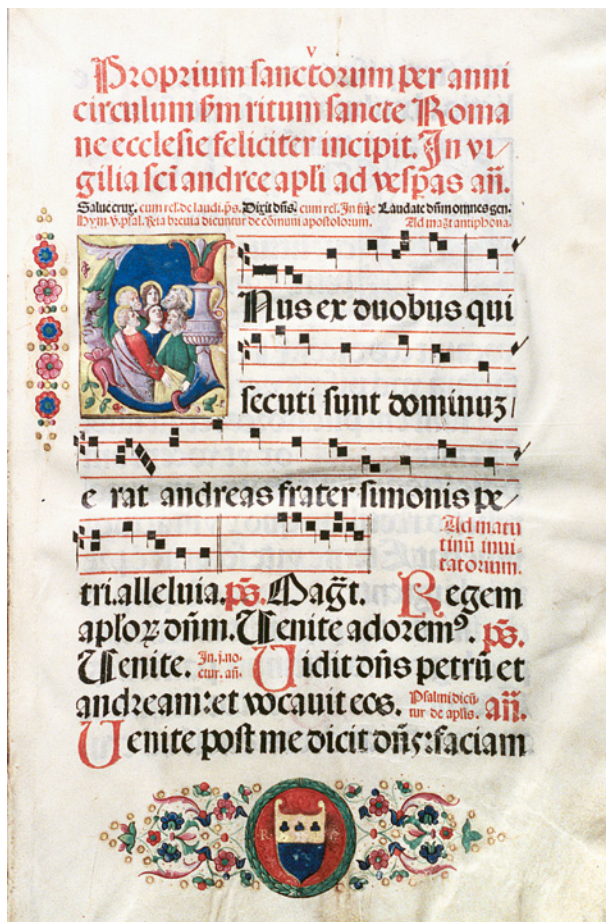 v
Proprium sanctorum per anni
circulum ẜm ritum sancte Roma
ne ecclesie feliciter incipit. In vi/
gilia sc̄i andree apli ad vesp̄as an̄.
Salue crux. cum rel. de laudi. p̄s. Dixit dn̄s. cum rel. In fine Laudate dn̄m omnes gen.
Hym. v̄. psal. Kia breuia dicuntur de cōmuni apostolorum. Ad mag̃t antiphona.
Unus ex duobus qui
secuti sunt dominuz/
e rat andreas frater simonis pe/
tri. alleluia. p̄s. Mag̃t. Regem
Ad matu
tinū inui
tatorium.
aploꝝ dn̄m. Uenite adoremꝰ. p̄s.
Uenite. In .j. no-
ctur. an̄. Uidit dn̄s petrū et
andream: et vocauit eos. Psalmi dicū-
tur de aplis. an̄.
Uenite post me dicit dn̄s: faciam